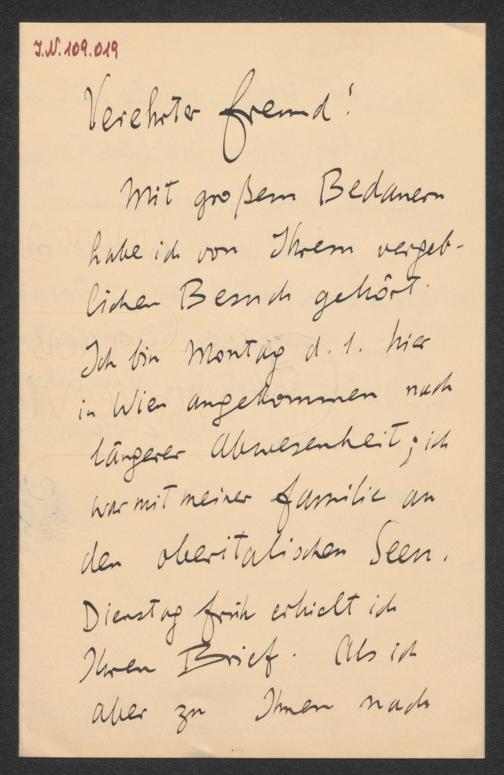 J.N. 109.019
Verehrter Freund!
Mit großem Bedauern
habe ich von Ihrem vergeb-
lichen Besuch gehört.
Ich bin Montag d. 1. hier
in Wien angekommen nach
längerer Abwesenheit; ich
war mit meiner Familie an
den oberitalischen Seen.
Dienstag früh erhielt ich
Ihren Brief. Als ich
aber zu Ihnen nach